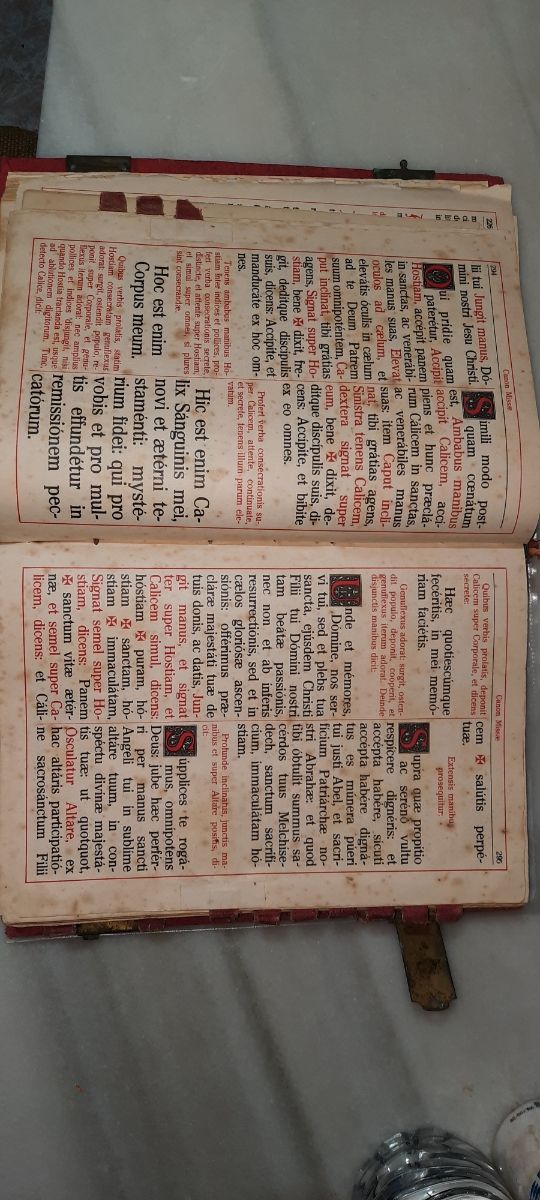 294
Canon Missæ
lii tui Jungit manus, Dó-
mini nostri Jesu Christi.
Qui pridie quam
paterétur, Accipit
Hostiam, accépit panem
in sanctas, ac venerábi-
les manus suas, Elevat
oculos ad cælum, et
elevátis óculis in cælum
ad te Deum Patrem
suum omnipoténtem, Ca-
put inclinat, tibi grátias
agens, Signat super Ho-
stiam, bene ✠ dixit, fre-
git, dedítque discípulis
suis, dicens: Accípite, et
manducáte ex hoc om-
nes.
Tenens ambabus manibus Ho-
stiam inter indices et pollices, pro-
fert verba consecrationis secrete,
distincte, et attente super Hostiam,
et simul super omnes, si plures
sint consecrandæ.
Hoc est enim
Corpus meum.
Quibus verbis prolatis, statim
Hostiam consecratam genuflexus
adorat: surgit, ostendit populo, re-
ponit super Corporale, et genu-
flexus iterum adorat: nec amplius
pollices et indices disjungit, nisi
quando Hostia tractanda est, usque
ad ablutionem digitorum. Tunc,
detecto Calice, dicit:
Símili modo post-
quam cœnátum
est, Ambabus manibus
accipit Calicem, accí-
piens et hunc præclá-
rum Cálicem in sanctas,
ac venerábiles manus
suas: item Caput incli-
nat, tibi grátias agens,
Sinistra tenens Calicem,
dextera signat super
eum, bene ✠ dixit, de-
dítque discípulis suis, di-
cens: Accípite, et bíbite
ex eo omnes.
Profert verba consecrationis su-
per Calicem, attente, continuate,
et secrete, tenens illum parum ele-
vatum.
Hic est enim Ca-
lix Sánguinis mei,
novi et ætérni te-
staménti: mysté-
rium fídei: qui pro
vobis et pro mul-
tis effundétur in
remissiónem pec-
catórum.
Canon Missæ
295
Quibus verbis prolatis, deponit
Calicem super Corporale, et dicens
secrete:
Hæc quotiescúmque
fecéritis, in mei memó-
riam faciétis.
Genuflexus adorat: surgit, osten-
dit populo, deponit, cooperit, et
genuflexus iterum adorat. Deinde
disjunctis manibus dicit:
Unde et mémores,
Dómine, nos ser-
vi tui, sed et plebs tua
sancta, ejúsdem Christi
Fílii tui Dómini nostri
tam beátæ passiónis,
nec non et ab ínferis
resurrectiónis, sed et in
cælos gloriósæ ascen-
siónis: offérimus præ-
cláræ majestáti tuæ de
tuis donis, ac datis, Jun-
git manus, et signat
ter super Hostiam, et
Calicem simul, dicens:
hóstiam ✠ puram, hó-
stiam ✠ sanctam, hó-
stiam ✠ immaculátam,
Signat semel super Ho-
stiam, dicens: Panem
✠ sanctum vitæ ætér-
næ, et semel super Ca-
licem, dicens: et Cáli-
cem ✠ salútis perpé-
tuæ.
Extensis manibus
prosequitur:
Supra quæ propítio
ac seréno vultu
respícere dignéris: et
accépta habére, sícuti
accépta habére digná-
tus es múnera púeri
tui justi Abel, et sacri-
fícium Patriárchæ no-
stri Abrahæ: et quod
tibi óbtulit summus sa-
cérdos tuus Melchíse-
dech, sanctum sacrifí-
cium, immaculátam hó-
stiam.
Profunde inclinatus, junctis ma-
nibus et super Altare positis, di-
cit:
Súpplices te rogá-
mus, omnípotens
Deus: jube hæc perfér-
ri per manus sancti
Angeli tui in sublíme
altáre tuum, in con-
spéctu divínæ majestá-
tis tuæ: ut quotquot,
Osculatur Altare, ex
hac altáris participatió-
ne sacrosánctum Fílii